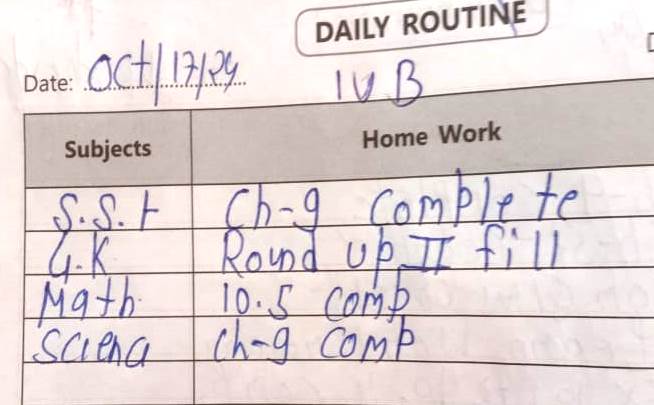 DAILY ROUTINE
Date: Oct/17/24
IV B
Subjects Home Work
S.S.t Ch-9 complete
G.K Round up II fill
Math 10.5 comp
Sciena Ch-9 comp